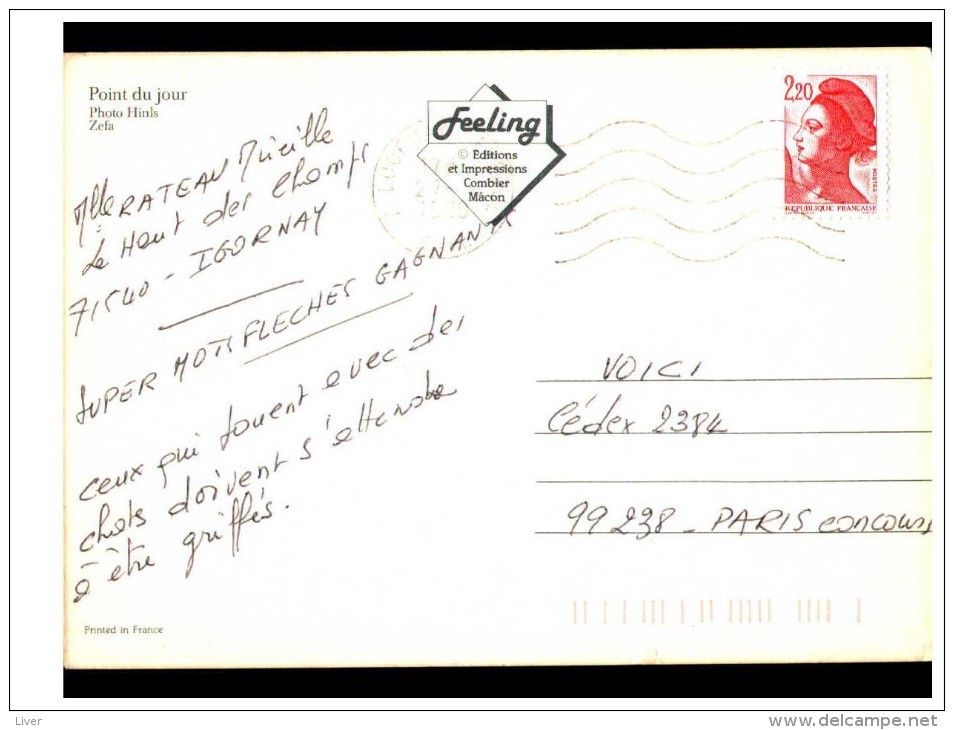 Point du jour
Photo Hinls
Zefa
Feeling
© Editions
et Impressions
Combier
Mâcon
2,20
POSTES
REPUBLIQUE FRANÇAISE
Mlle RATEAU Mireille
Le Haut des Champs
71540 - IGORNAY
SUPER MOTS FLECHES GAGNANTS
ceux qui jouent avec des
chats doivent s'attendre
à être griffés.
VOICI
Cédex 2384
99238 - PARIS concours
Printed in France
Liver
www.delcampe.net